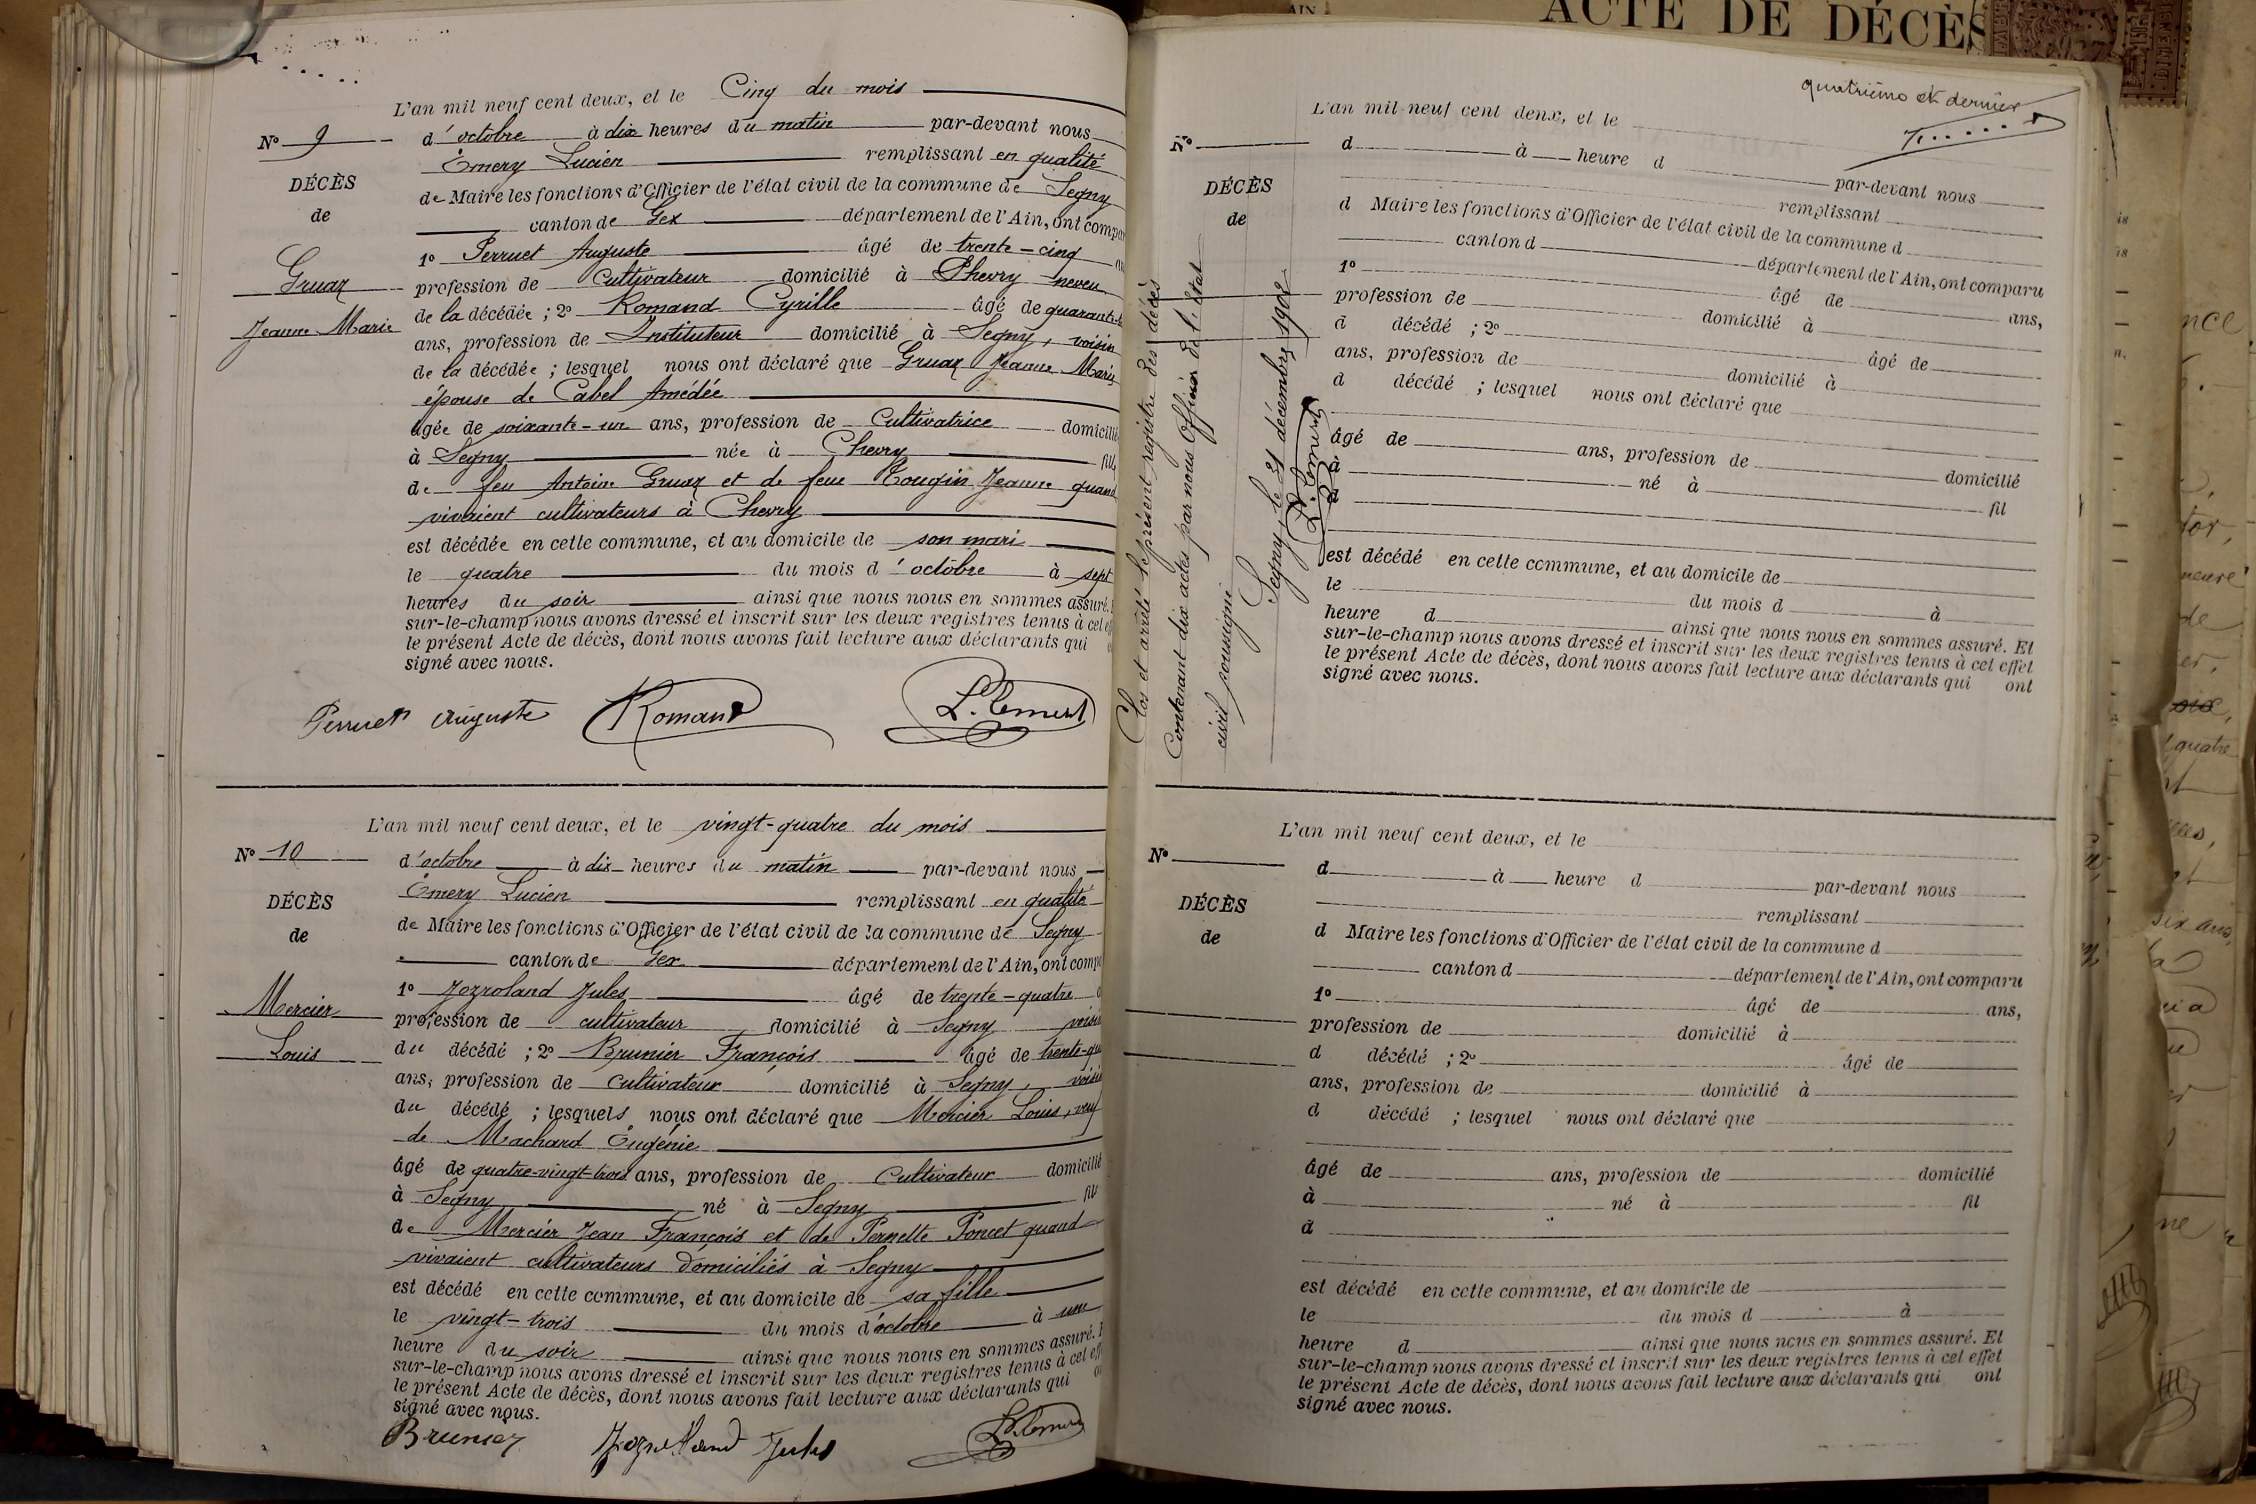 L'an mil neuf cent deux, et le Cinq du mois
N° 9
d'octobre à dix heures du matin par-devant nous
Émery Lucien remplissant en qualité
DÉCÈS
de Maire les fonctions d'Officier de l'état civil de la commune de Segny
de
canton de Gex département de l'Ain, ont compa
1° Perruet Auguste âgé de trente-cinq
Gruaz
profession de Cultivateur domicilié à Chevry neveu
de la décédée ; 2° Romand Cyrille âgé de
Jeanne Marie
ans, profession de Instituteur domicilié à Segny, voisin
de la décédée ; lesquel nous ont déclaré que Gruaz Jeanne Marie
épouse de Cabel Amédée
âgée de soixante-un ans, profession de Cultivatrice domicilié
à Segny née à Chevry fill
de feu Antoine Gruaz et de feue Tougin Jeanne quand
vivaient cultivateurs à Chevry
est décédée en cette commune, et au domicile de son mari
le quatre du mois d'octobre à sept
heures du soir ainsi que nous nous en sommes assuré.
sur-le-champ nous avons dressé et inscrit sur les deux registres tenus à cet
le présent Acte de décès, dont nous avons fait lecture aux déclarants qui
signé avec nous.
Perruet Auguste Romand L. Emery
L'an mil neuf cent deux, et le vingt-quatre du mois
N° 10
d'octobre à dix heures du matin par-devant nous
Émery Lucien remplissant en qualité
DÉCÈS
de Maire les fonctions d'Officier de l'état civil de la commune de Segny
de
canton de Gex département de l'Ain, ont comp
1° Jezroland Jules âgé de trente-quatre
Mercier
profession de cultivateur domicilié à Segny voisin
Louis
du décédé ; 2° Brunier François âgé de trente-qu
ans, profession de cultivateur domicilié à Segny, voisi
du décédé ; lesquels nous ont déclaré que Mercier Louis, veuf
de Machard Eugénie
âgé de quatre-vingt-trois ans, profession de Cultivateur domicilié
à Segny né à Segny fils
de Mercier Jean François et de Pernette Poncet quand
vivaient cultivateurs domiciliés à Segny
est décédé en cette commune, et au domicile de sa fille
le vingt-trois du mois d'octobre à une
heure du soir ainsi que nous nous en sommes assuré.
sur-le-champ nous avons dressé et inscrit sur les deux registres tenus à cet eff
le présent Acte de décès, dont nous avons fait lecture aux déclarants qui
signé avec nous.
Brunier Jezroland Jules L. Emery
ACTE DE DÉCÈS
quatrième et dernier
L'an mil neuf cent deux, et le
N°
d à heure d par-devant nous
DÉCÈS
remplissant
de
d Maire les fonctions d'Officier de l'état civil de la commune d
canton d département de l'Ain, ont comparu
1° âgé de ans,
profession de domicilié à
d décédé ; 2° âgé de
ans, profession de domicilié à
d décédé ; lesquel nous ont déclaré que
âgé de ans, profession de domicilié
à né à fil
d
est décédé en cette commune, et au domicile de
le du mois d à
heure d ainsi que nous nous en sommes assuré. Et
sur-le-champ nous avons dressé et inscrit sur les deux registres tenus à cet effet
le présent Acte de décès, dont nous avons fait lecture aux déclarants qui ont
signé avec nous.
Clos et arrêté le présent registre des décès
Contenant dix actes par nous Officier de l'état
civil soussigné
Segny le 31 décembre 1902
L. Emery
L'an mil neuf cent deux, et le
N°
d à heure d par-devant nous
DÉCÈS
remplissant
de
d Maire les fonctions d'Officier de l'état civil de la commune d
canton d département de l'Ain, ont comparu
1° âgé de ans,
profession de domicilié à
d décédé ; 2° âgé de
ans, profession de domicilié à
d décédé ; lesquel nous ont déclaré que
âgé de ans, profession de domicilié
à né à fil
d
est décédé en cette commune, et au domicile de
le du mois d à
heure d ainsi que nous nous en sommes assuré. Et
sur-le-champ nous avons dressé et inscrit sur les deux registres tenus à cet effet
le présent Acte de décès, dont nous avons fait lecture aux déclarants qui ont
signé avec nous.